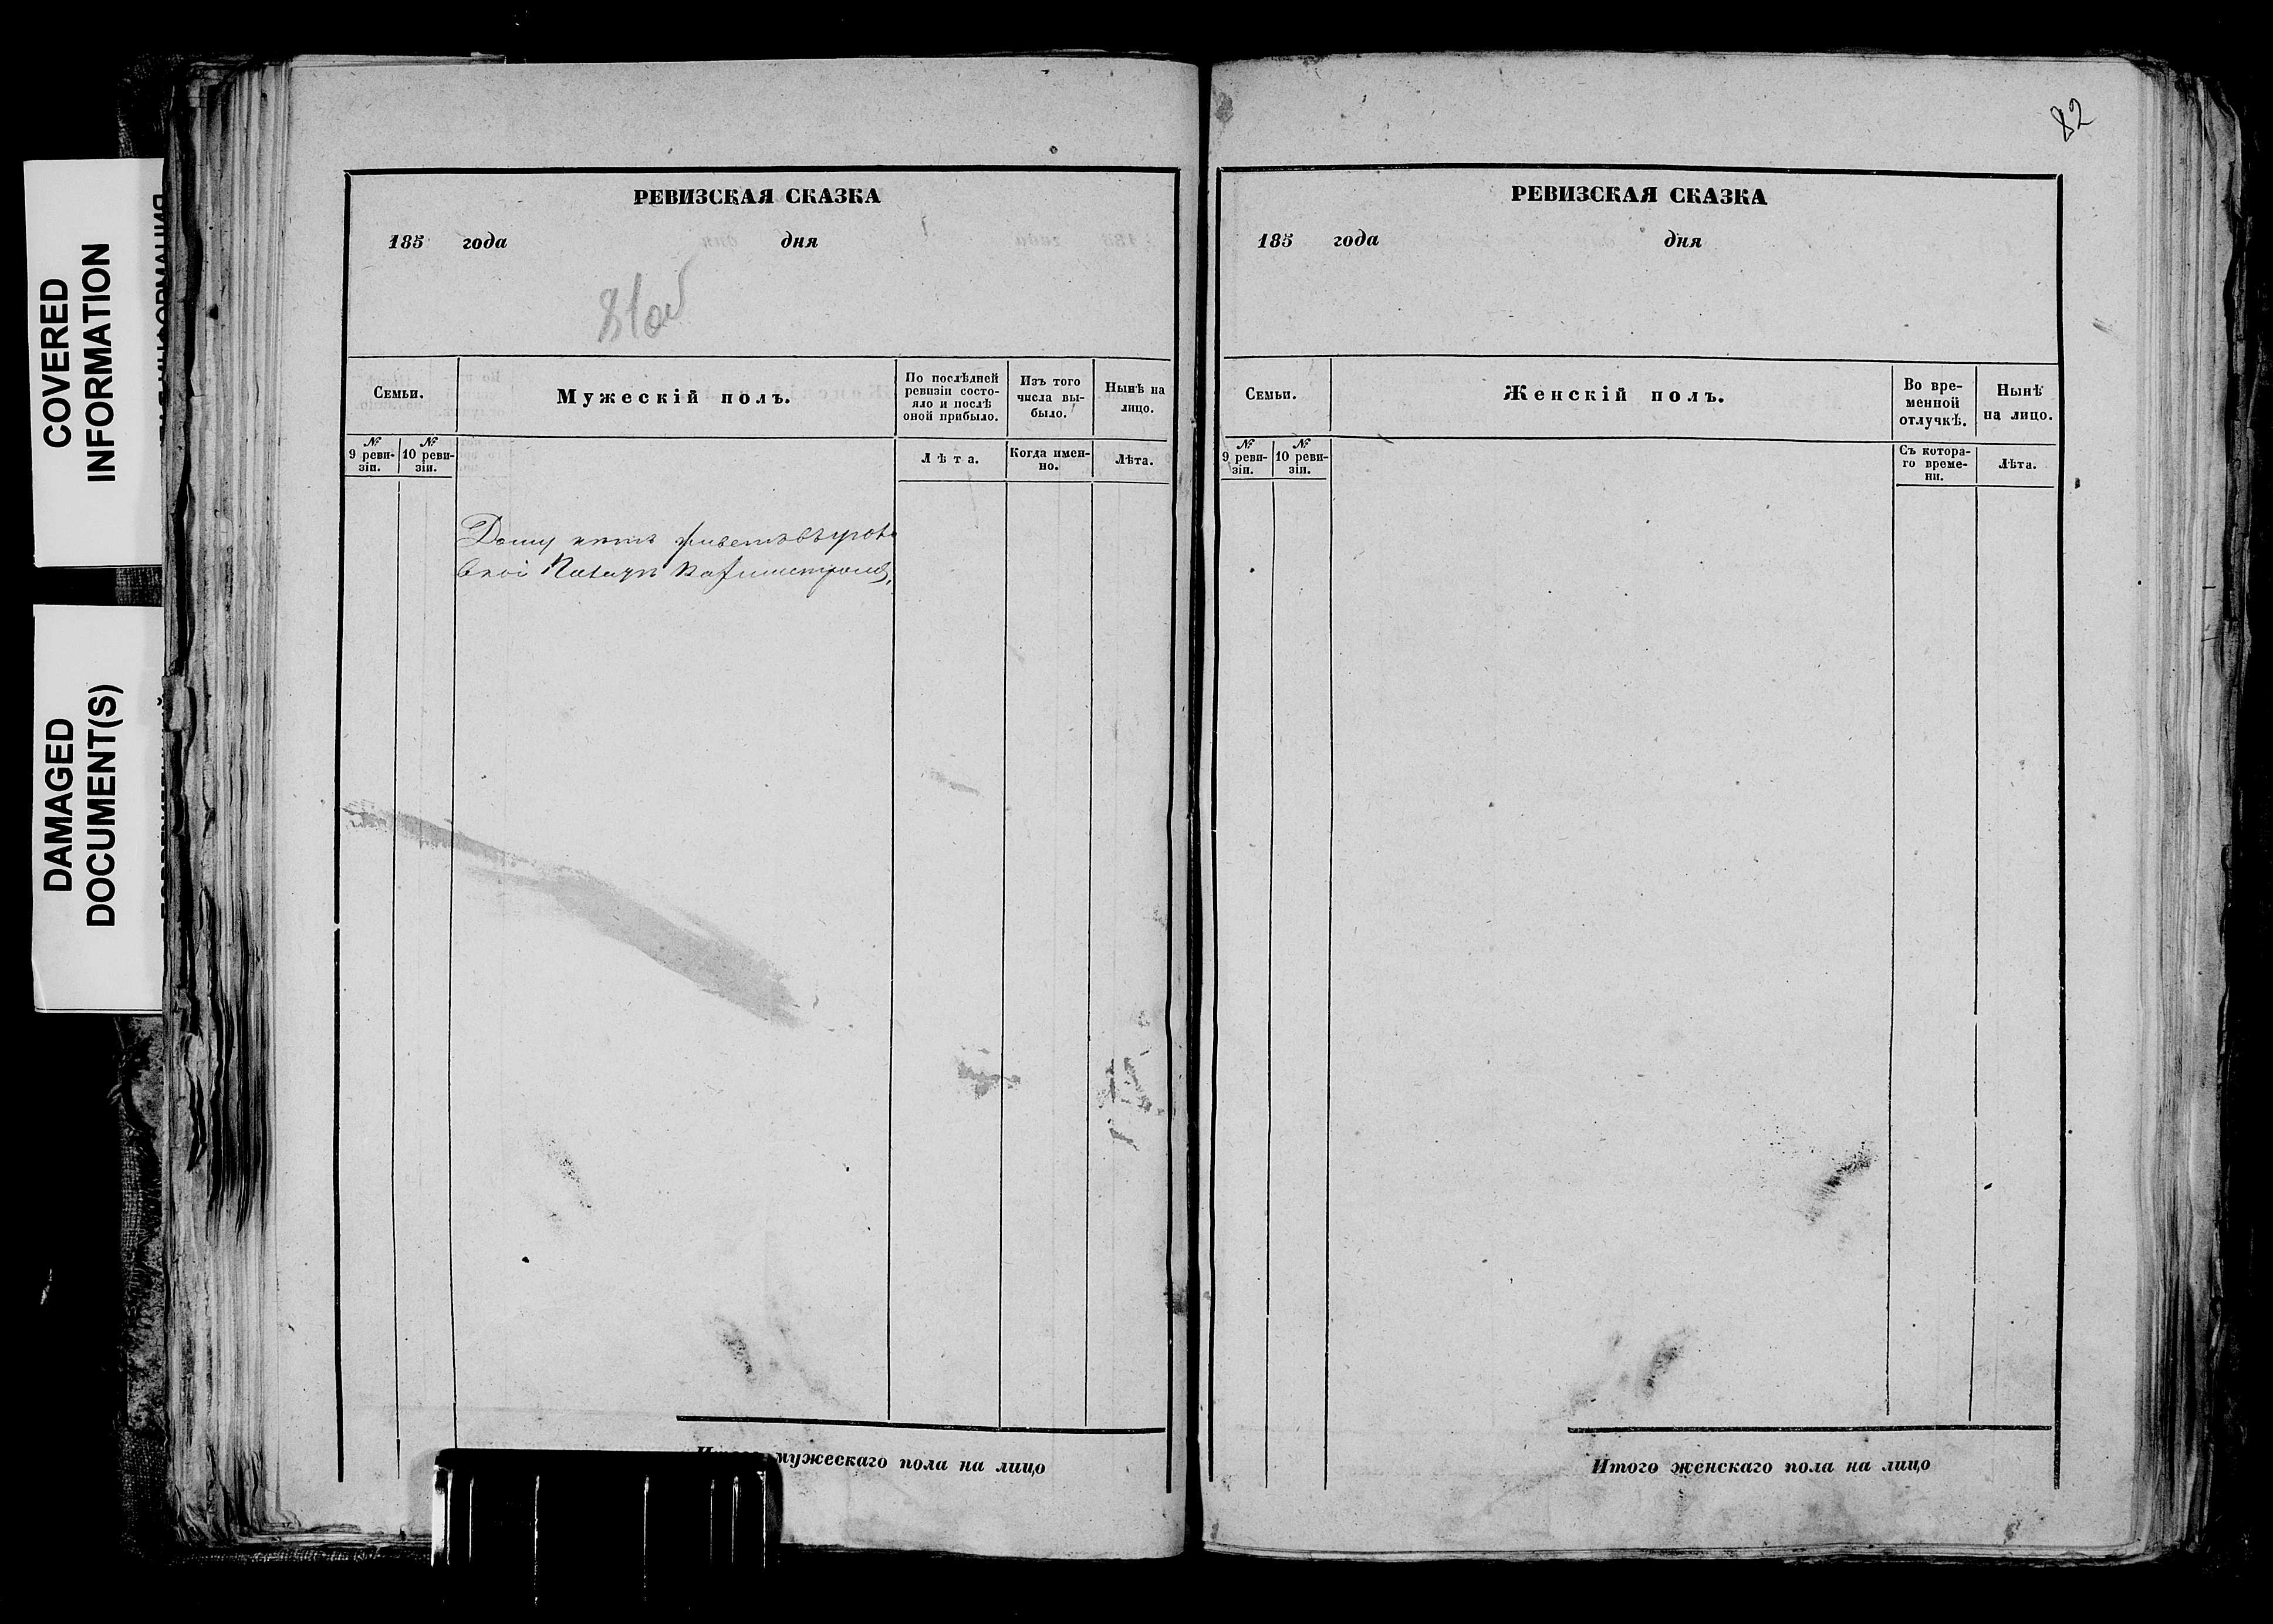 COVERED
INFORMATION
DAMAGED
DOCUMENT(S)
РЕВИЗСКАЯ СКАЗКА
185 года дня
81об
Семьи.
Мужескій полъ.
По послѣдней
ревизіи состо-
яло и послѣ
оной прибыло.
Изъ того
числа вы-
было.
Нынѣ на
лицо.
№
9 реви-
зіи.
№
10 реви-
зіи.
Лѣта.
Когда имен-
но.
Лѣта.
Дому
мужескаго пола на лицо
82
РЕВИЗСКАЯ СКАЗКА
185 года дня
Семьи.
Женскій полъ.
Во вре-
менной
отлучкѣ.
Нынѣ
на лицо.
№
9 реви-
зіи.
№
10 реви-
зіи.
Съ котора-
го време-
ни.
Лѣта.
Итого женскаго пола на лицо